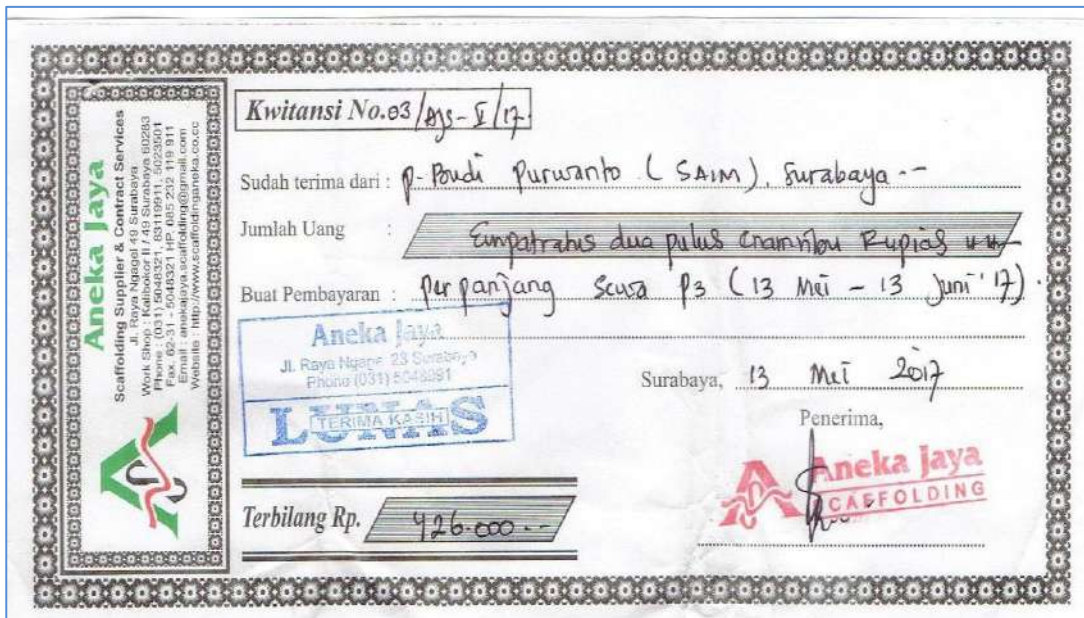 Aneka Jaya
Scaffolding Supplier & Contract Services
Jl. Raya Ngagel 49 Surabaya
Work Shop : Kalibokor II / 49 Surabaya 60283
Phone : (031) 5048321, 83119911, 5023501
Fax. 62-31 - 5048321 HP. 085 232 119 911
Email : anekajaya.scaffolding@gmail.com
Website : http://www.scaffoldinganeka.co.cc
Kwitansi No.03/AJS-V/17
Sudah terima dari : P. Budi Purwanto (SAIM), Surabaya --
Jumlah Uang : Empatratus dua pulus enamribu Rupias
Buat Pembayaran : Perpanjang sewa P3 (13 Mei - 13 Juni '17).
Aneka Jaya
Jl. Raya Ngagel 23 Surabaya
Phone (031)
LUNAS
TERIMA KASIH
Surabaya, 13 Mei 2017
Penerima,
Aneka Jaya
SCAFFOLDING
Terbilang Rp. 426.000.--